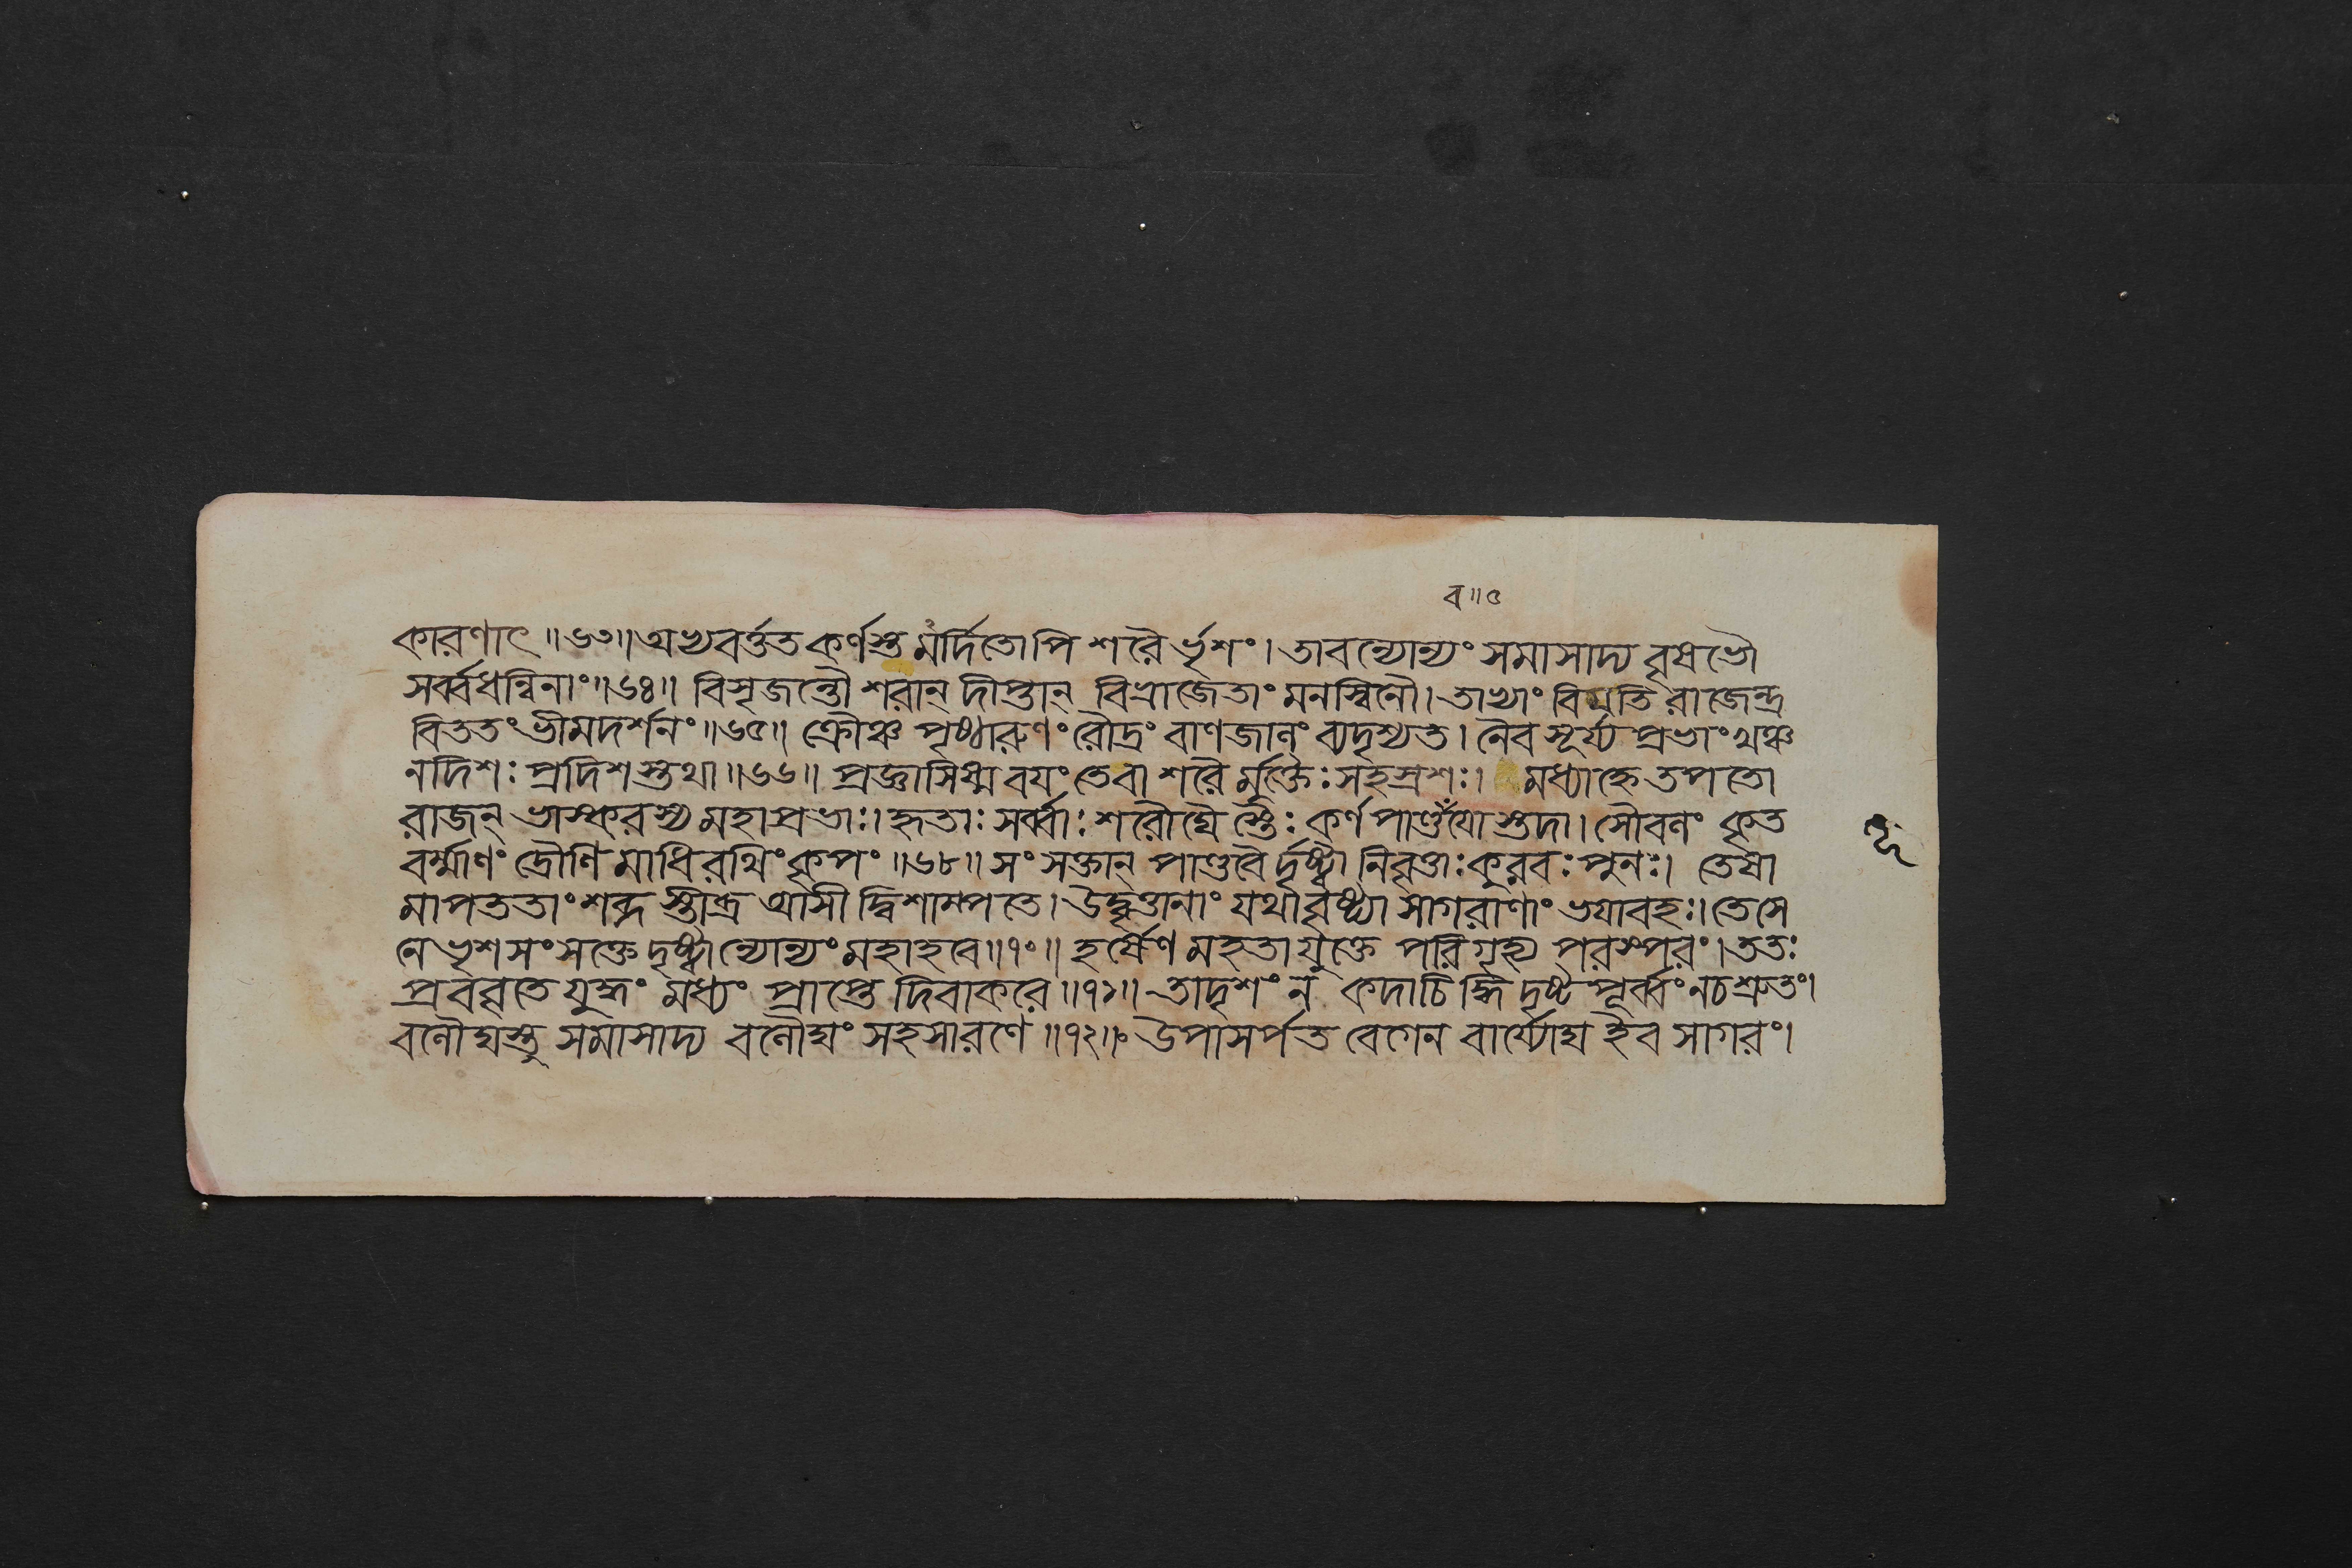 ব॥৫
কারণাৎ ॥৬৩॥ অভ্যবর্ত্তত কর্ণস্তু মর্দিতোপি শরৈ র্ভৃশং। তাবন্যোন্যং সমাসাদ্য বৃষভৌ
সর্ব্বধন্বিনাং॥৬৪॥ বিসৃজন্তৌ শরান্ দীপ্তান্ বিভ্রাজেতাং মনস্বিনৌ। তাভ্যাং বিয়তি রাজেন্দ্র
বিততং ভীমদর্শনং॥৬৫॥ ক্রৌঞ্চ পৃষ্ঠারুণং রৌদ্রং বাণজালং ব্যদৃশ্যত। নৈব সূর্য্য প্রভাং খঞ্চ
ন দিশঃ প্রদিশ স্তথা॥৬৬॥ প্রজ্ঞাসিষ্ম বযং তে বা শরৈ র্মুক্তৈঃ সহস্রশঃ। মধ্যাহ্নে তপতো
রাজন্ ভাস্করস্য মহাপ্রভাঃ। হৃতাঃ সর্ব্বাঃ শরৌঘৈ স্তৈঃ কর্ণ পাণ্ডবযো স্তদা। সৌবলং কৃত
বর্ম্মাণং দ্রৌণি মাধিরথিং কৃপং ॥৬৮॥ সং সক্তান্ পাণ্ডবৈ র্দৃষ্ট্বা নিবৃত্তাঃ কুরবঃ পুনঃ। তেষা
মাপততাং শব্দ স্তীব্র আসী দ্বিশাম্পতে। উদ্বৃত্তানাং যথা বৃষ্ট্যা সাগরাণাং ভযাবহঃ। তে সে
নে ভৃশসংসক্তে দৃষ্ট্বান্যোন্যং মহাহবে॥৭০॥ হর্ষেণ মহতা যুক্তে পরিগৃহ্য পরস্পরং। ততঃ
প্রববৃতে যুদ্ধং মধ্যং প্রাপ্তে দিবাকরে॥৭১॥ তাদৃশং ন কদাচিদ্ধি দৃষ্ট পূর্ব্বং ন চ শ্রুতং।
বলৌঘস্তু সমাসাদ্য বলৌঘং সহসা রণে ॥৭২॥ উপাসর্পত বেগেন বার্য্যোঘ ইব সাগরং।